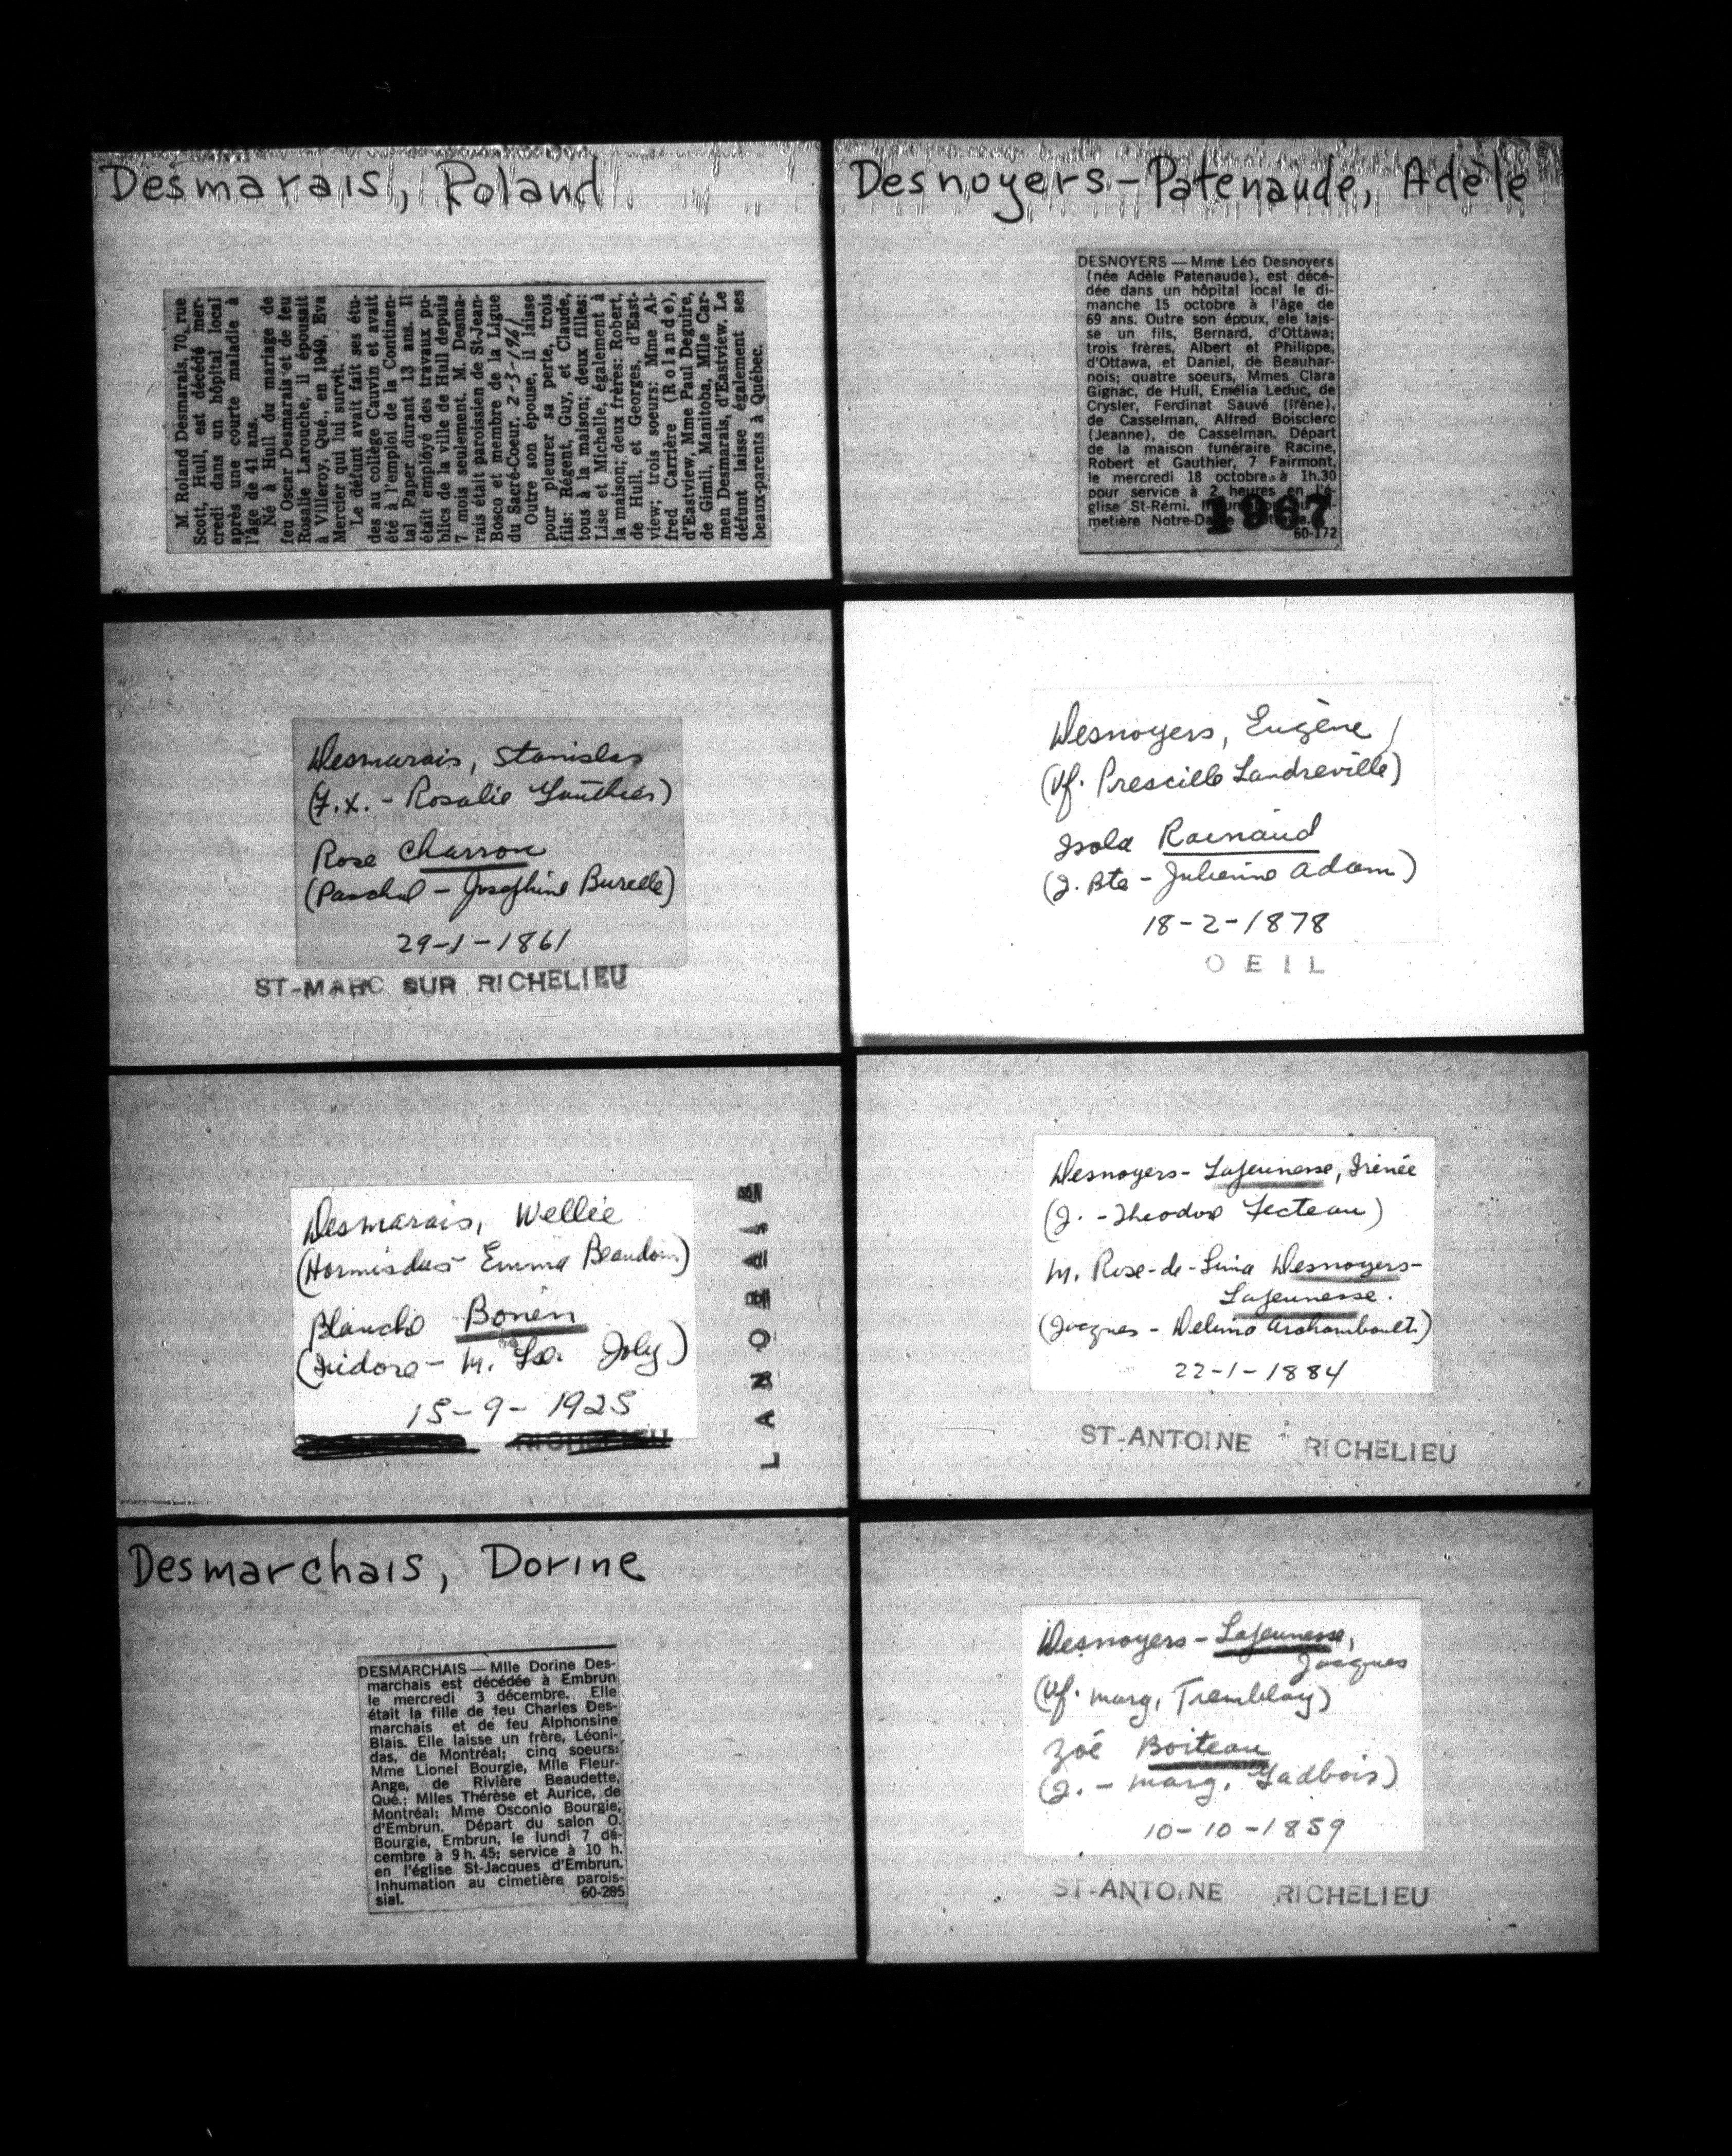 Desmarais, Roland
M. Roland Desmarais, 70, rue
Scott, Hull, est décédé mer-
credi dans un hôpital local
après une courte maladie à
l'âge de 41 ans.
Né à Hull du mariage de
feu Oscar Desmarais et de feu
Rosalie Larouche, il épousait
à Villeroy, Qué., en 1949, Eva
Mercier qui lui survit.
Le défunt avait fait ses étu-
des au collège Cauvin et avait
été à l'emploi de la Continen-
tal Paper durant 13 ans. Il
était employé des travaux pu-
blics de la ville de Hull depuis
7 mois seulement. M. Desma-
rais était paroissien de St-Jean-
Bosco et membre de la Ligue
du Sacré-Coeur. 2-3-1961
Outre son épouse, il laisse
pour pleurer sa perte, trois
fils: Régent, Guy, et Claude,
tous à la maison; deux filles:
Lise et Michelle, également à
la maison; deux frères: Robert,
de Hull, et Georges, d'East-
view; trois soeurs: Mme Al-
fred Carrière (Rolande),
d'Eastview, Mme Paul Deguire,
de Gimli, Manitoba, Mlle Car-
men Desmarais, d'Eastview. Le
défunt laisse également ses
beaux-parents à Québec.
Desnoyers-Patenaude, Adèle
DESNOYERS — Mme Léo Desnoyers
(née Adèle Patenaude), est décé-
dée dans un hôpital local le di-
manche 15 octobre à l'âge de
69 ans. Outre son époux, ele lais-
se un fils, Bernard, d'Ottawa;
trois frères, Albert et Philippe,
d'Ottawa, et Daniel, de Beauhar-
nois; quatre soeurs, Mmes Clara
Gignac, de Hull, Emélia Leduc, de
Crysler, Ferdinat Sauvé (Irène),
de Casselman, Alfred Boisclerc
(Jeanne), de Casselman. Départ
de la maison funéraire Racine,
Robert et Gauthier, 7 Fairmont,
le mercredi 18 octobre à 1h.30
pour service à 2 heures en l'é-
glise St-Rémi.
metière Notre-Dame
1967
60-172
Desmarais, Stanislas
(F.X. - Rosalie Gauthier)
Rose Charron
(Paschal - Josephine Burelle)
29-1-1861
ST-MARC SUR RICHELIEU
Desnoyers, Eugène
(Vf. Prescille Landreville)
Isola Rainaud
(J. Bte - Julienne Adam)
18-2-1878
OEIL
Desmarais, Wellie
(Hormisdas - Emma Beaudoin)
Blanche Bonen
(Isidore - M. Joly)
15-9-1925
RICHELIEU
LANORAIE
Desnoyers-Lajeunesse, Irénée
(J. - Theodore Fecteau)
M. Rose-de-Lima Desnoyers-
Lajeunesse.
(Jacques - Delima Archambault)
22-1-1884
ST-ANTOINE RICHELIEU
Desmarchais, Dorine
DESMARCHAIS — Mlle Dorine Des-
marchais est décédée à Embrun
le mercredi 3 décembre. Elle
était la fille de feu Charles Des-
marchais et de feu Alphonsine
Blais. Elle laisse un frère, Léoni-
das, de Montréal; cinq soeurs:
Mme Lionel Bourgie, Mlle Fleur-
Ange, de Rivière Beaudette,
Qué.; Mlles Thérèse et Aurice, de
Montréal; Mme Osconio Bourgie,
d'Embrun. Départ du salon O.
Bourgie, Embrun, le lundi 7 dé-
cembre à 9 h. 45; service à 10 h.
en l'église St-Jacques d'Embrun.
Inhumation au cimetière parois-
sial. 60-285
Desnoyers-Lajeunesse,
Jacques
(Vf. Marg. Tremblay)
Zoé Boiteau
(J. - Marg. Gadbois)
10-10-1859
ST-ANTOINE RICHELIEU